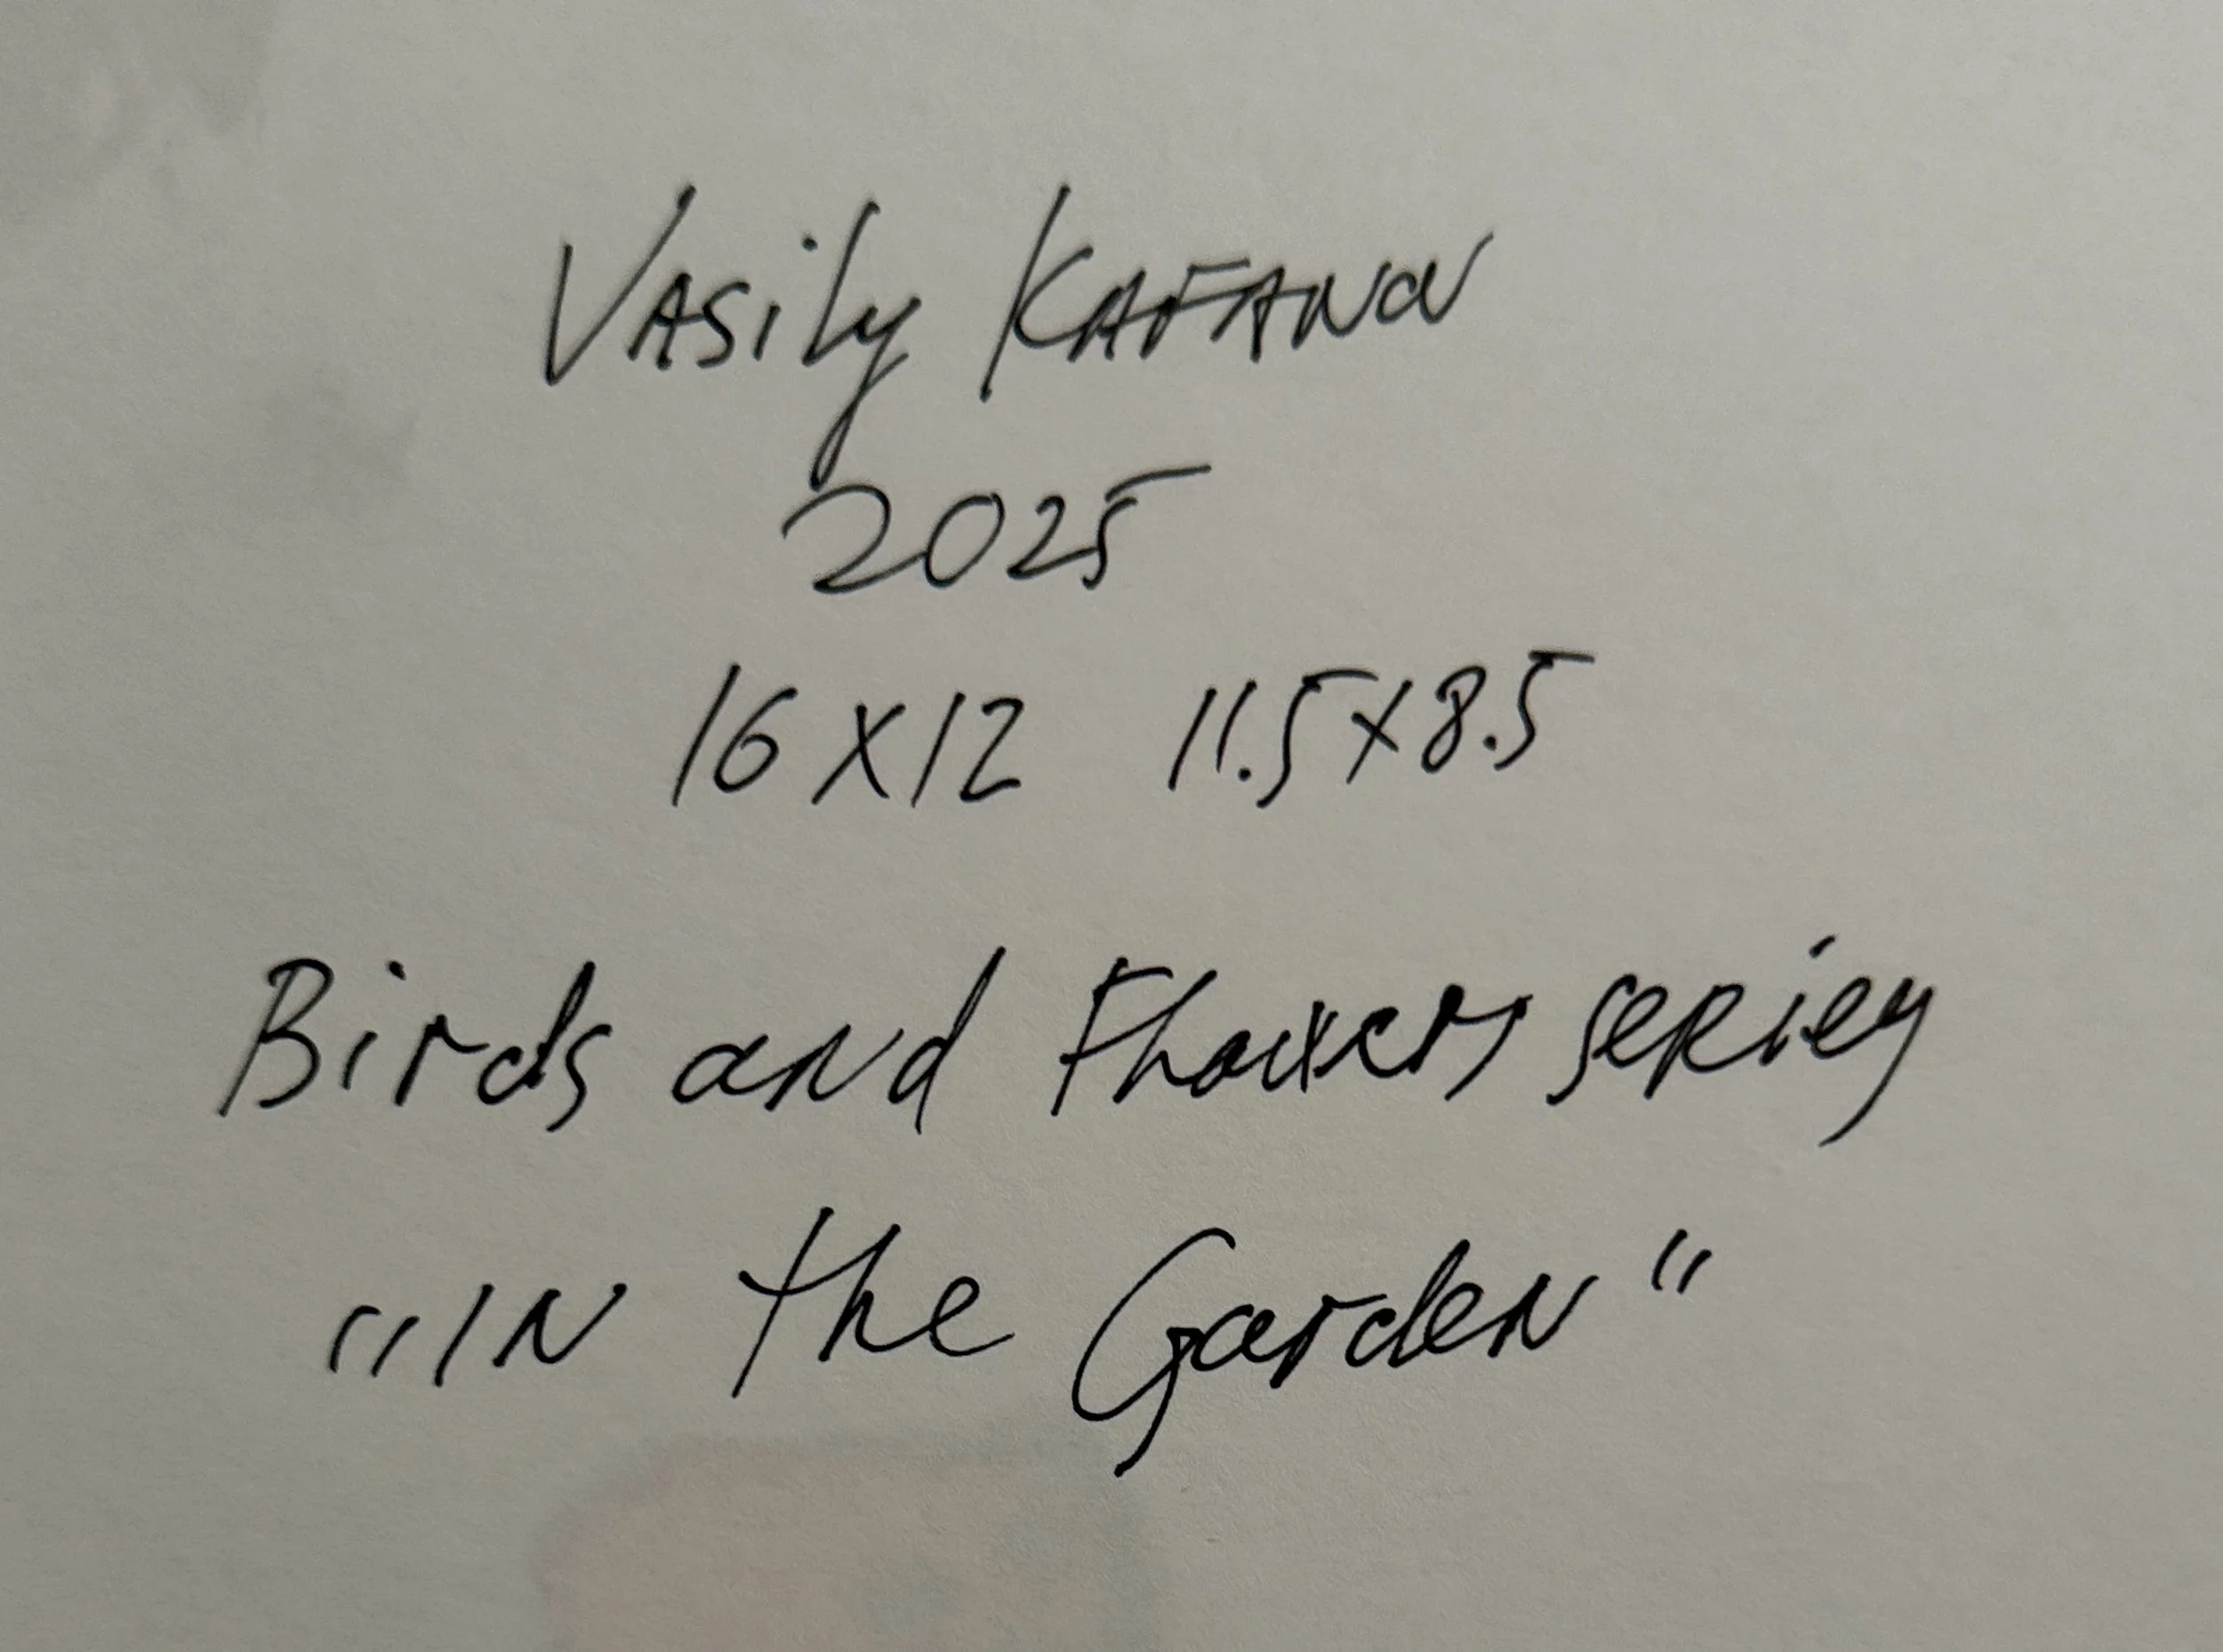 Vasily Kafanov
2025
16 x 12 11.5 x 8.5
Birds and Flowers series
"In the Garden"